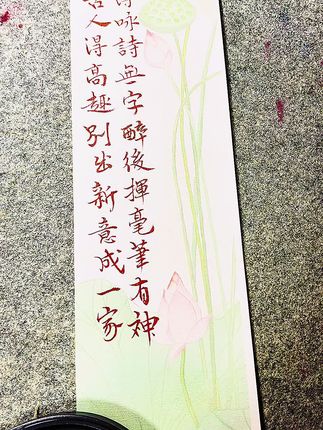 咏詩無字醉後揮毫筆有神
人得高趣别出新意成一家